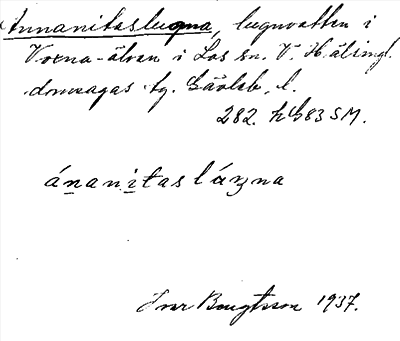 Annanitaslugna, lugnvatten i
Voxna-älven i Los sn. V. Hälsingl.
domsagas tg. Gävleb. l.
282. h G83 SM.
ánanitasláʒna
Ivar Bengtsson 1937.